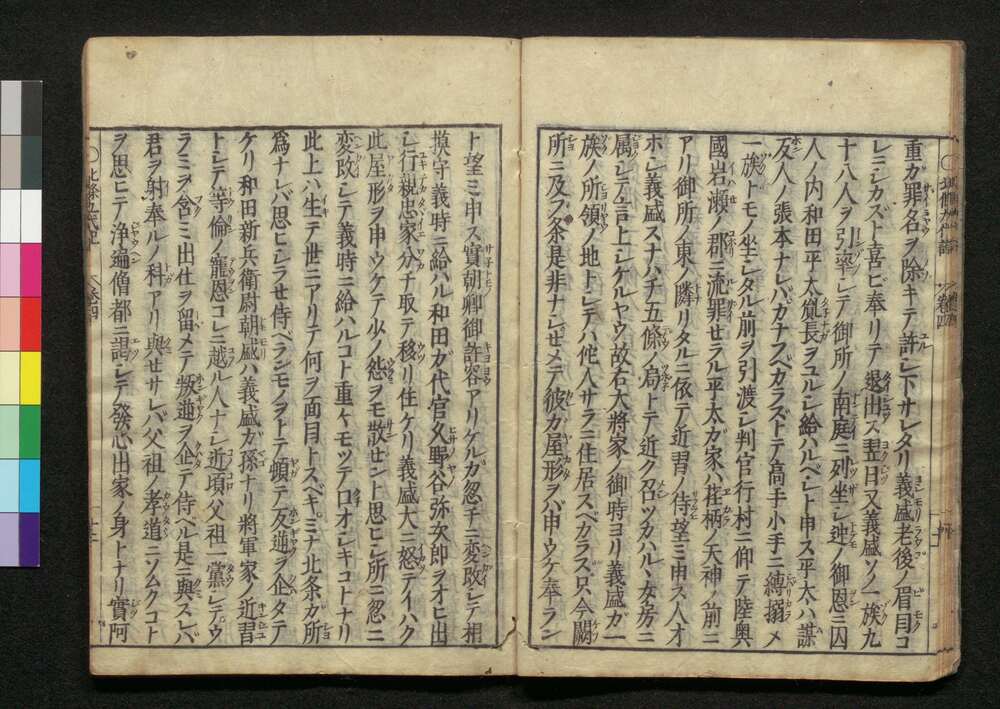 重ガ罪名ヲ除キテ許シ下サレタリ義盛老後ノ眉目コ
レニシカズト喜ビ奉リテ退出ス翌日又義盛ソノ一族九
十八人ヲ引率シテ御所ノ南庭ニ列坐シ迚ノ御恩ニ囚
人ノ内和田平太胤長ヲユルシ給ハルベシト申ス平太ハ謀
反人ノ張本ナレバカナフベカラズトテ高手小手ニ縛搦メ
一族トモノ坐シタル前ヲ引渡シ判官行村ニ仰テ陸奥
國岩瀬ノ郡ニ流罪せラル平太ガ家ハ荏柄ノ天神ノ前ニ
アリ御所ノ東ノ隣リタルニ依テ近習ノ侍望ミ申ス人オ
ホシ義盛スナハチ五條ノ局トテ近ク召ツカハルヽ女房ニ
属シテ言上シケルヤウ故右大将家ノ御時ヨリ義盛ガ一
族ノ所領ノ地トシテハ他人サラニ住居スベカラス只今闕
所ニ及フ条是非ナシせメテ彼カ屋形ヲバ申ウケ奉ラン
ト望ミ申ス實朝卿御許容アリケルカ忽チニ変改シテ相
摸守義時ニ給ハル和田ガ代官久野谷弥次郎ヲオヒ出
シ行親忠家分チ取テ移リ住ケリ義盛大ニ怒テイハク
此屋形ヲ申ウケテ少ノ怨ヲモ散せント思ヒシ所ニ忽ニ
変改シテ義時ニ給ハルコト重ケモツテ口オシキコトナリ
此上ハ生テ世ニアリテ何ヲ面目トスベキミナ北条ガ所
為ナレバ思ヒシラせ侍ベランモノヲトテ頓テ反逆ヲ企タテ
ケリ和田新兵衛尉朝盛ハ義盛ガ孫ナリ將軍家ノ近習
トシテ等倫ノ寵恩コレニ越ル人ナシ近頃父祖一黨シテウ
ラミヲ含ミ出仕ヲ留メテ叛逆ヲ企テ侍ベル是ニ與スレバ
君ヲ射奉ルノ科アリ與せサレバ父祖ノ孝道ニソムクコト
ヲ思ヒテ浄遍僧都ニ謁シテ發心出家ノ身トナリ實阿
北條九代記 卷四